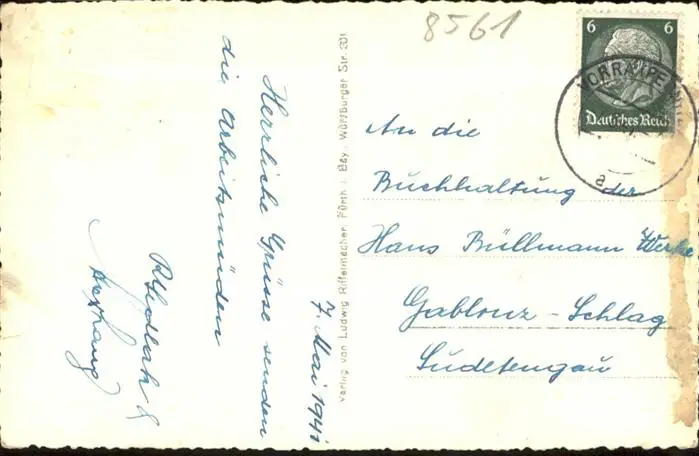 8561
6 6
Deutsches Reich
a
An die
Buchhaltung der
Hans Büllmann Werke
Gablonz - Schlag
Sudetengau
Verlag von Ludwig Riffelmacher, Fürth i. Bay., Würzburger Str.
7. Mai 1941
Herrliche Grüsse senden
die Arbeitsmüden